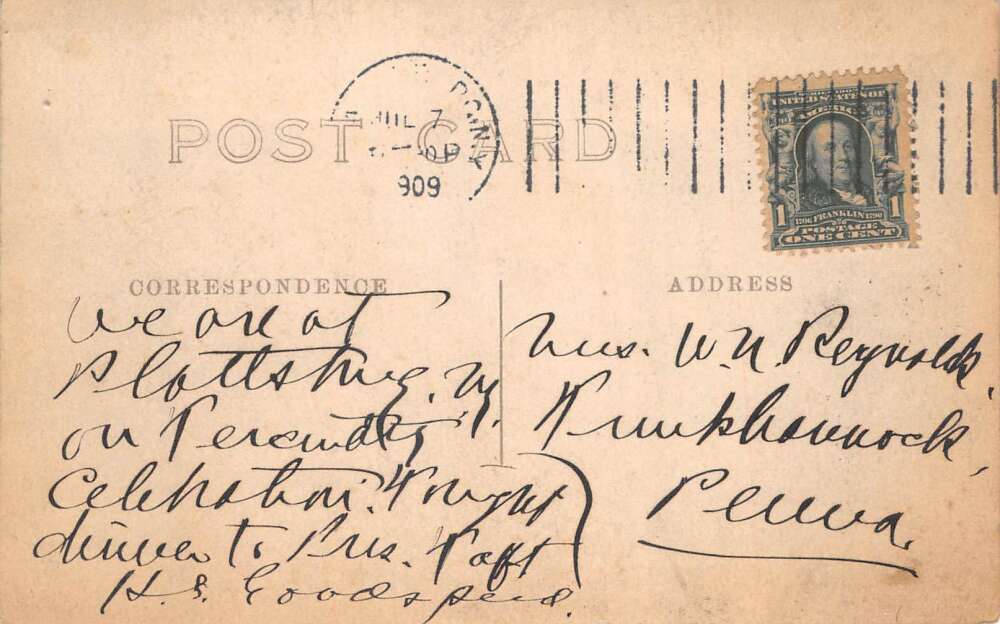 POST CARD
JUL 7
1909
UNITED STATES OF
AMERICA
1706 FRANKLIN 1790
1 POSTAGE 1
ONE CENT
CORRESPONDENCE
ADDRESS
We are at
Plattsburg, NY
on Tercentary
Celebration. Tonight
dinner to Pres. Taft
H. S. Goodspeed.
Mrs. W. N. Reynolds,
Tunkhannock,
Penna.